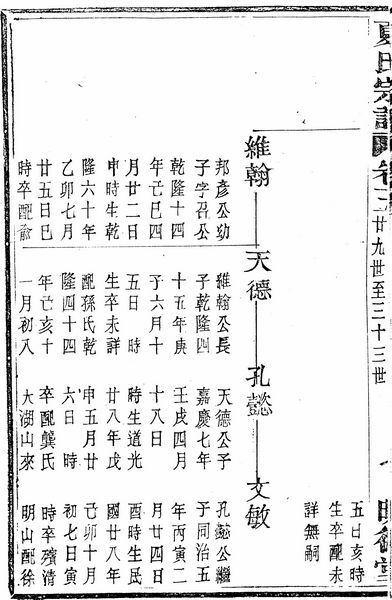 夏氏宗譜 卷 廿九世至三十三世 明德堂
五日亥時
生卒配未
詳無嗣
維翰 天德 孔懿 文敏
邦彥公幼
子字召公
乾隆十四
年己巳四
月廿二日
申時生乾
隆六十年
乙卯七月
廿五日巳
時卒配俞
維翰公長
子乾隆四
十五年庚
子六月十
五日 時
生卒未詳
配孫氏乾
隆四十四
年己亥十
一月初八
天德公子
嘉慶七年
壬戌四月
十八日
時生道光
廿八年戊
申五月廿
六日 時
卒配龔氏
大湖山來
孔懿公繼
子同治五
年丙寅二
月廿四日
酉時生民
國廿八年
己卯十月
初七日寅
時卒殯清
明山配徐